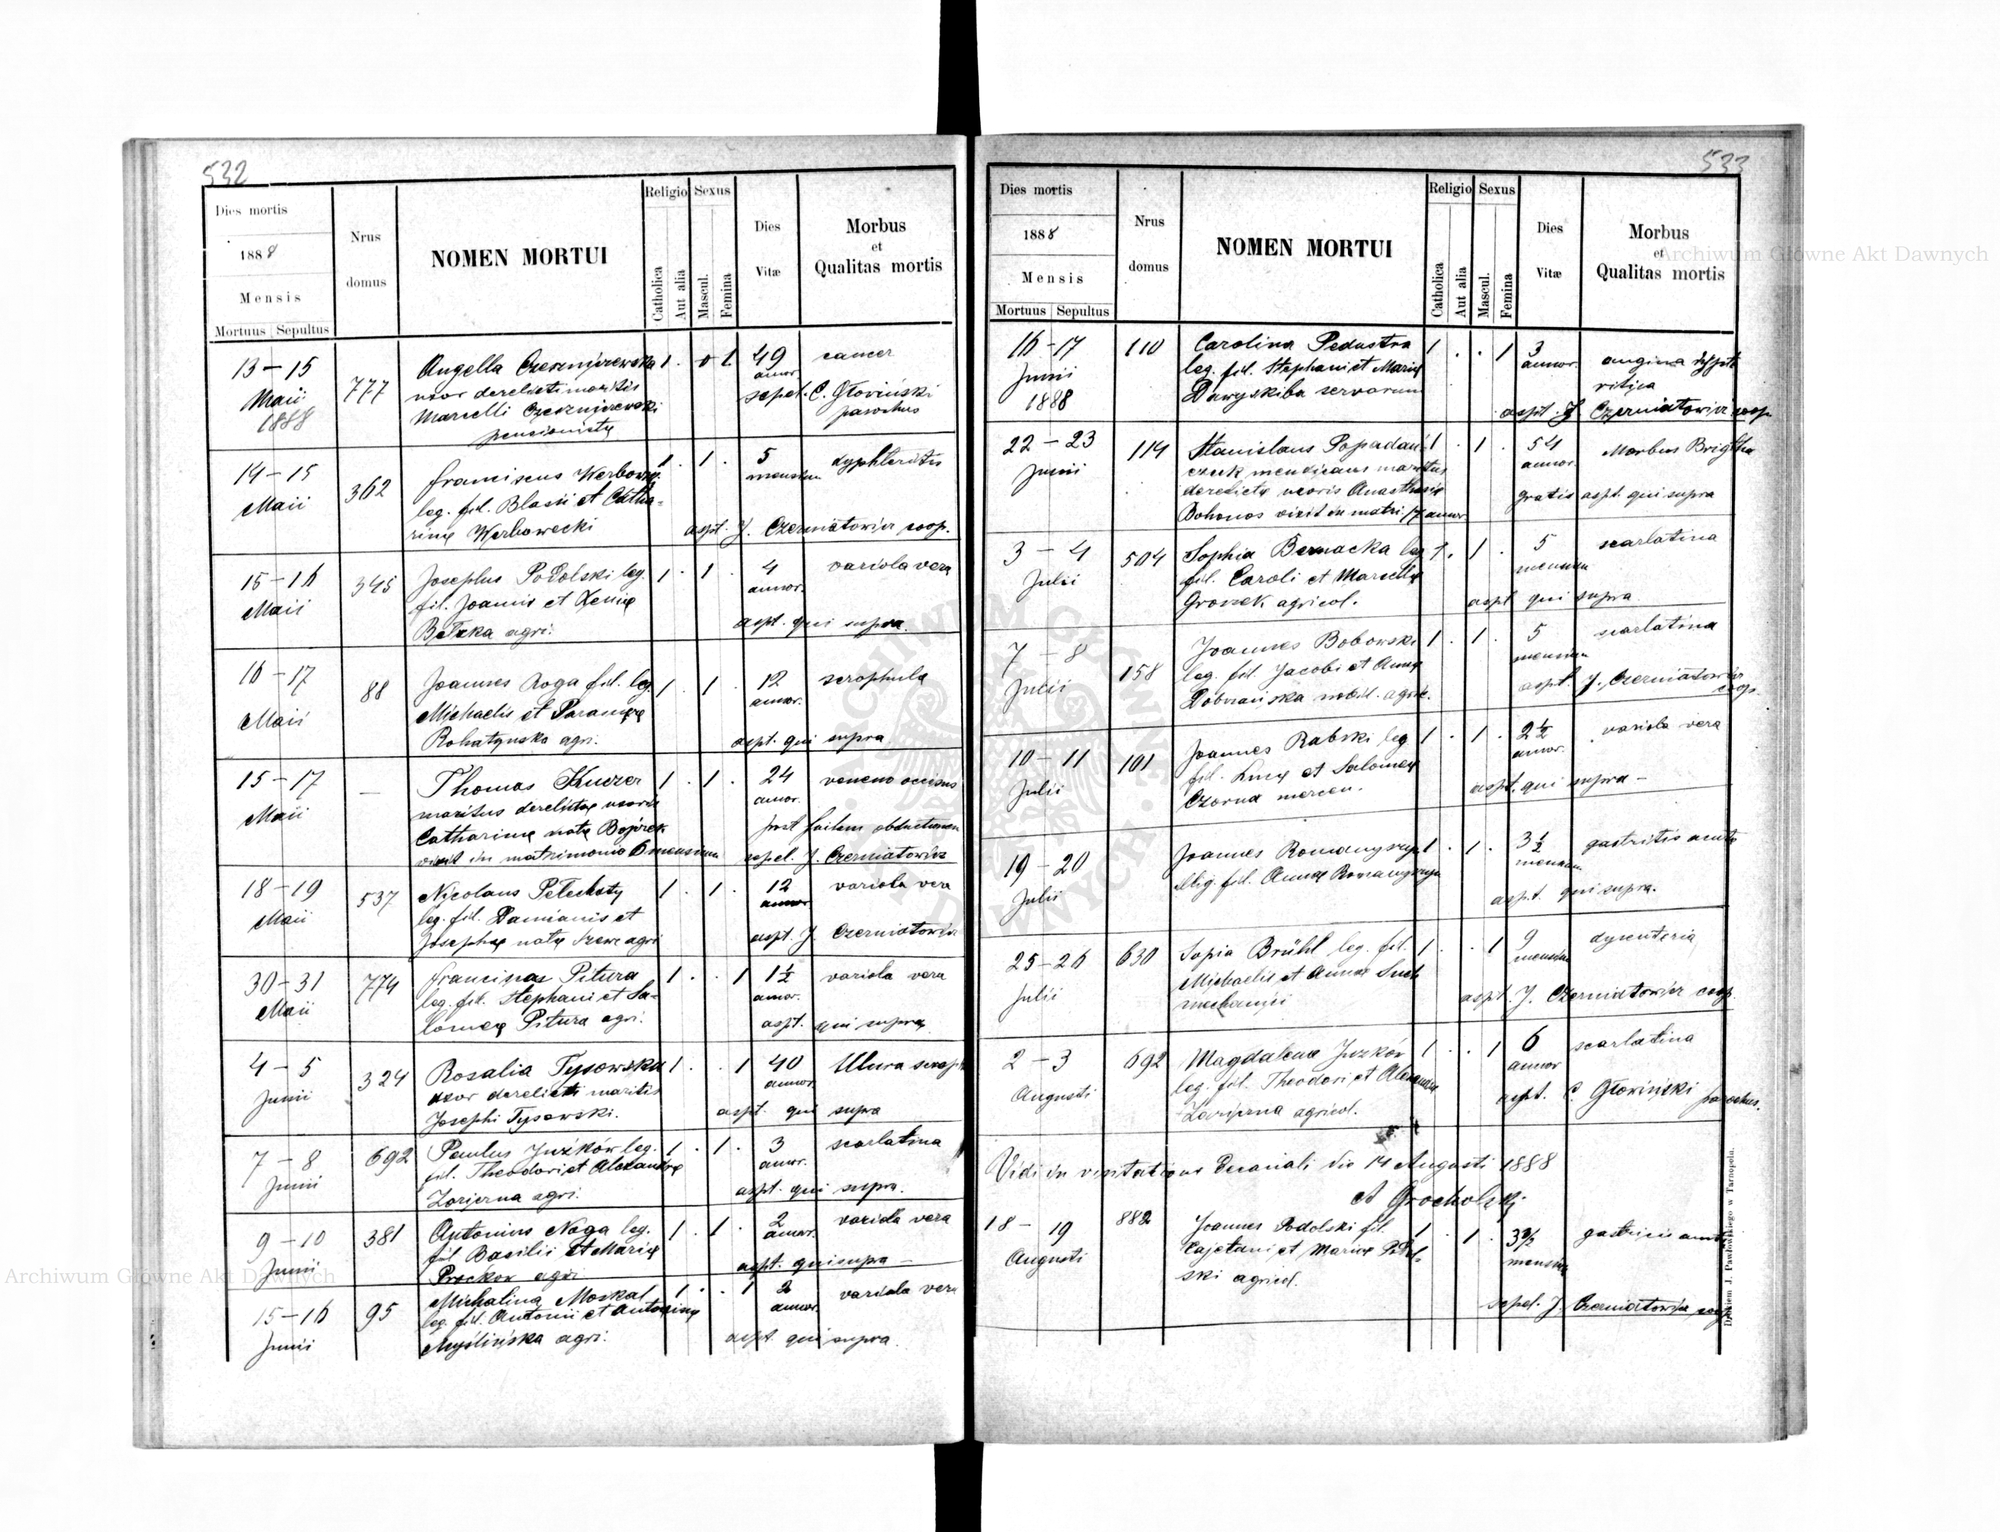 532
Dies mortis
1888
Mensis
Mortuus Sepultus
Nrus
domus
NOMEN MORTUI
Religio
Catholica
Aut alia
Sexus
Mascul.
Femina
Dies
Vitæ
Morbus
et
Qualitas mortis
13 – 15 777 Angella Czerniszewska 1 . 1 49 cancer
Maii uxor derelicti mariti annor.
1888 Marcelli sepel. C. Głowiński
pensionistę parochus
14 – 15 362 Franciscus 1 . 1 . 5
Maii leg. fil. Blasii et Catha- mensium
rinę Werbowecki aspt. J. Czerniatowicz coop.
15 – 16 345 Josephus Podolski leg. 1 . 1 . 4 variola vera
Maii fil. Joannis et Xenię annor.
agri. aspt. qui supra.
16 – 17 88 Joannes Roga fil. leg. 1 . 1 . 12 scrophulę
Maii Michaelis et annor.
agri. aspt. qui supra
15 – 17 — Thomas 1 . 1 . 24 veneno
Maii maritus derelictę uxoris annor.
Catharinę natę post
vixit in matrimonio 6 mensium sepel. J. Czerniatowicz
18 – 19 537 Nicolaus 1 . 1 . 12 variola vera
Maii leg. fil. Damianis et annor
Josephę natę agri aspt. J. Czerniatowicz
30 – 31 774 Pitura 1 . . 1 1½ variola vera
Maii leg. fil. Stephani et Sa- annor.
lomeę Pitura agri. aspt. qui supra
4 – 5 324 Rosalia Tysowska 1 . . 1 40
Junii uxor derelicti mariti annor.
Josephi Tysowski. aspt. qui supra
7 – 8 692 Paulus Juzków leg. 1 . 1 . 3 scarlatina
Junii fil. Theodori et Alexandrę annor.
agri. aspt. qui supra.
9 – 10 381 Antonius Noga leg. 1 . 1 . 2 variola vera
Junii fil Basilii et Marię annor.
agri aspt. qui supra –
15 – 16 95 Michalina Moskal 1 . . 1 2 variola vera
Junii leg. fil. Antonii et Antoninę annor.
Myślińska agri. aspt. qui supra.
533
Dies mortis
1888
Mensis
Mortuus Sepultus
Nrus
domus
NOMEN MORTUI
Religio
Catholica
Aut alia
Sexus
Mascul.
Femina
Dies
Vitæ
Morbus
et
Qualitas mortis
16 – 17 110 Carolina 1 . . 1 3 angina
Junii leg. fil. Stephani et Marię annor.
1888 servorum aspt. J. Czerniatowicz coop.
22 – 23 114 Stanislaus 1 . 1 . 54 Morbus
Junii mendicans maritus annor.
derelictę uxoris gratis aspt. qui supra
Bohonos vixit in matri. 17 annor
3 – 4 504 Sophia leg 1 . 1 . 5 scarlatina
Julii fil. Caroli et mensium
agricol. aspt qui supra.
7 – 8 158 Joannes Bobowski 1 . 1 . 5 scarlatina
Julii leg. fil. Jacobi et Annę mensium
Dobrzańska aspt. J. Czerniatowicz
coop.
10 – 11 101 Joannes Rabski leg 1 . 1 . 2½ variola vera
Julii fil. Lucę et Salomeę annor.
Czorna aspt. qui supra –
19 – 20 Joannes 1 . 1 . 3½ gastritis
Julii illig. fil. Annę mensium
aspt. qui supra.
25 – 26 630 Sopia Brühl leg. fil. 1 . . 1 9 dysenteria
Julii Michaelis et Annę mensium
aspt. J. Czerniatowicz coop.
2 – 3 692 Magdalena Juzków 1 . . 1 6 scarlatina
Augusti leg. fil. Theodori et annor
agricol. aspt. C. Głowiński parochus.
Vidi in visitatione Decanali die 14 Augusti 1888
A Grocholski
18 – 19 882 Joannes Podolski fil. 1 . 1 .
Augusti Cajetani et Marię Podol- mensium
ski agricol.
sepel. J. Czerniatowicz coop.
Drukiem J. Pawłowskiego w Tarnopolu.
Archiwum Główne Akt Dawnych
Archiwum Główne Akt Dawnych
ARCHIWUM GŁÓWNE AKT DAWNYCH